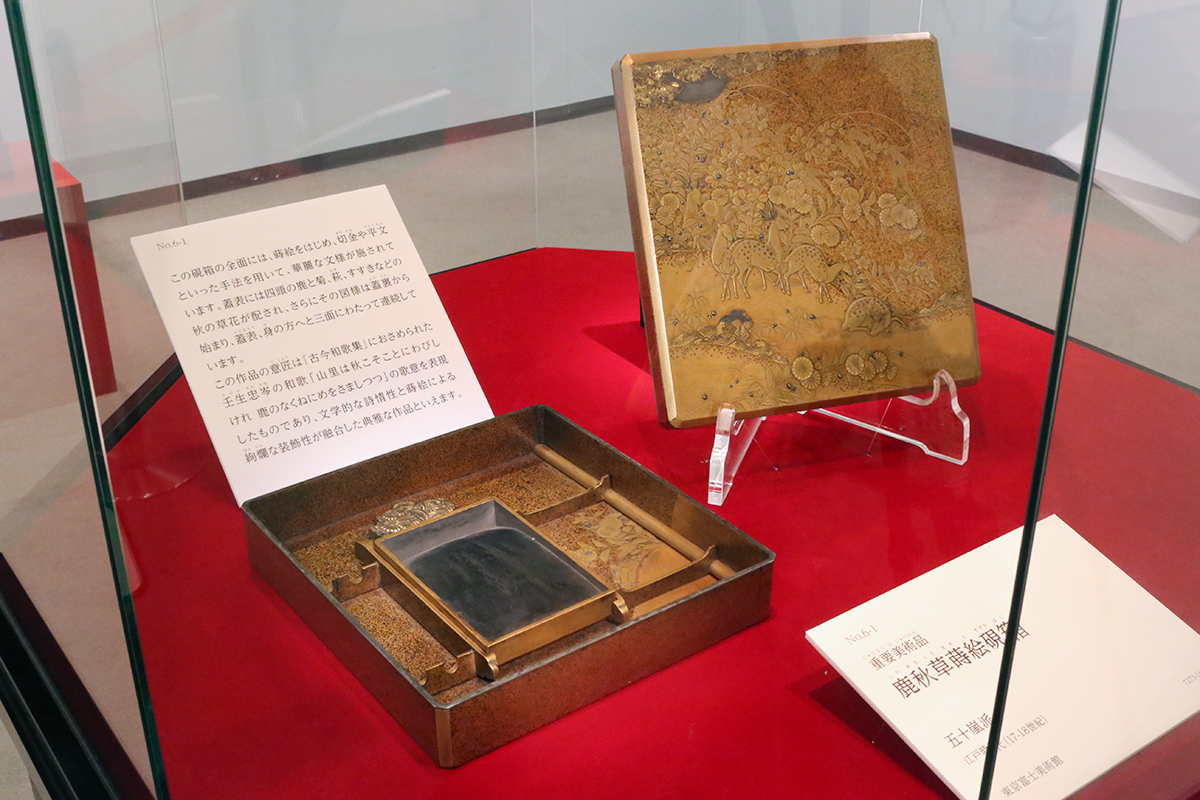 No.6-1
この硯箱の全面には、蒔絵をはじめ、切金や平文
といった手法を用いて、華麗な文様が施されて
います。蓋表には四頭の鹿と菊、萩、すすきなどの
秋の草花が配され、さらにその図様は蓋裏から
始まり、蓋表、身の方へと三面にわたって連続して
います。
この作品の意匠は『古今和歌集』におさめられた
壬生忠岑の和歌「山里は秋こそことにわびし
けれ 鹿のなくねにめをさましつつ」の歌意を表現
したものであり、文学的な詩情性と蒔絵による
絢爛な装飾性が融合した典雅な作品といえます。
No.6-1
重要美術品
鹿秋草蒔絵硯箱
五十嵐派
江戸時代(17-18世紀)
東京富士美術館